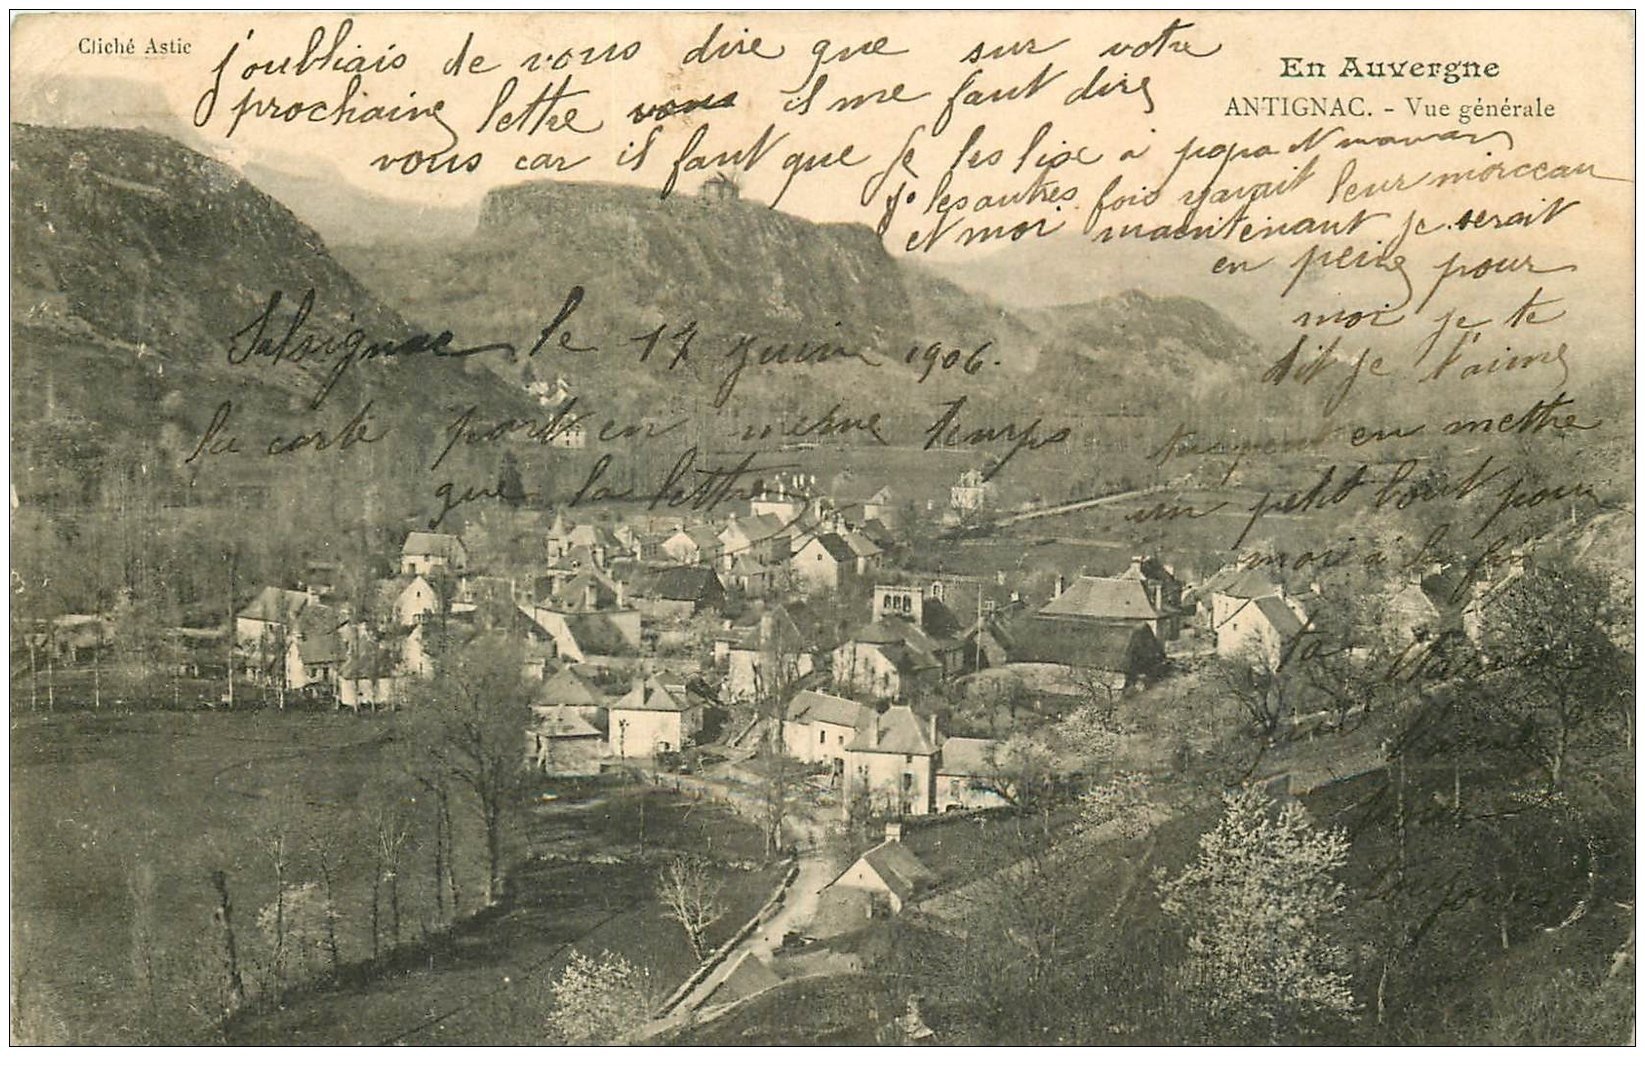 Cliché Astic
En Auvergne
ANTIGNAC. - Vue générale
j'oubliais de vous dire que sur votre
prochaine lettre vous il me faut dire
vous car il faut que je les lise à papa et maman
les autres fois yavait leur morceau
et moi maintenant je serait
en peine pour
moi je te
dit je t'aime
en mettre
un petit bout pour
moi à la fin
ta
toujours
Salsignac le 17 juin 1906.
la carte part en même temps
que la lettre